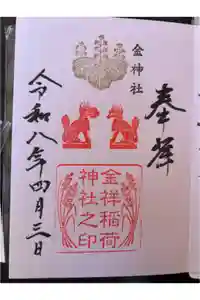 奉拝
金神社
金祥稲荷
神社之印
令和八年四月三日